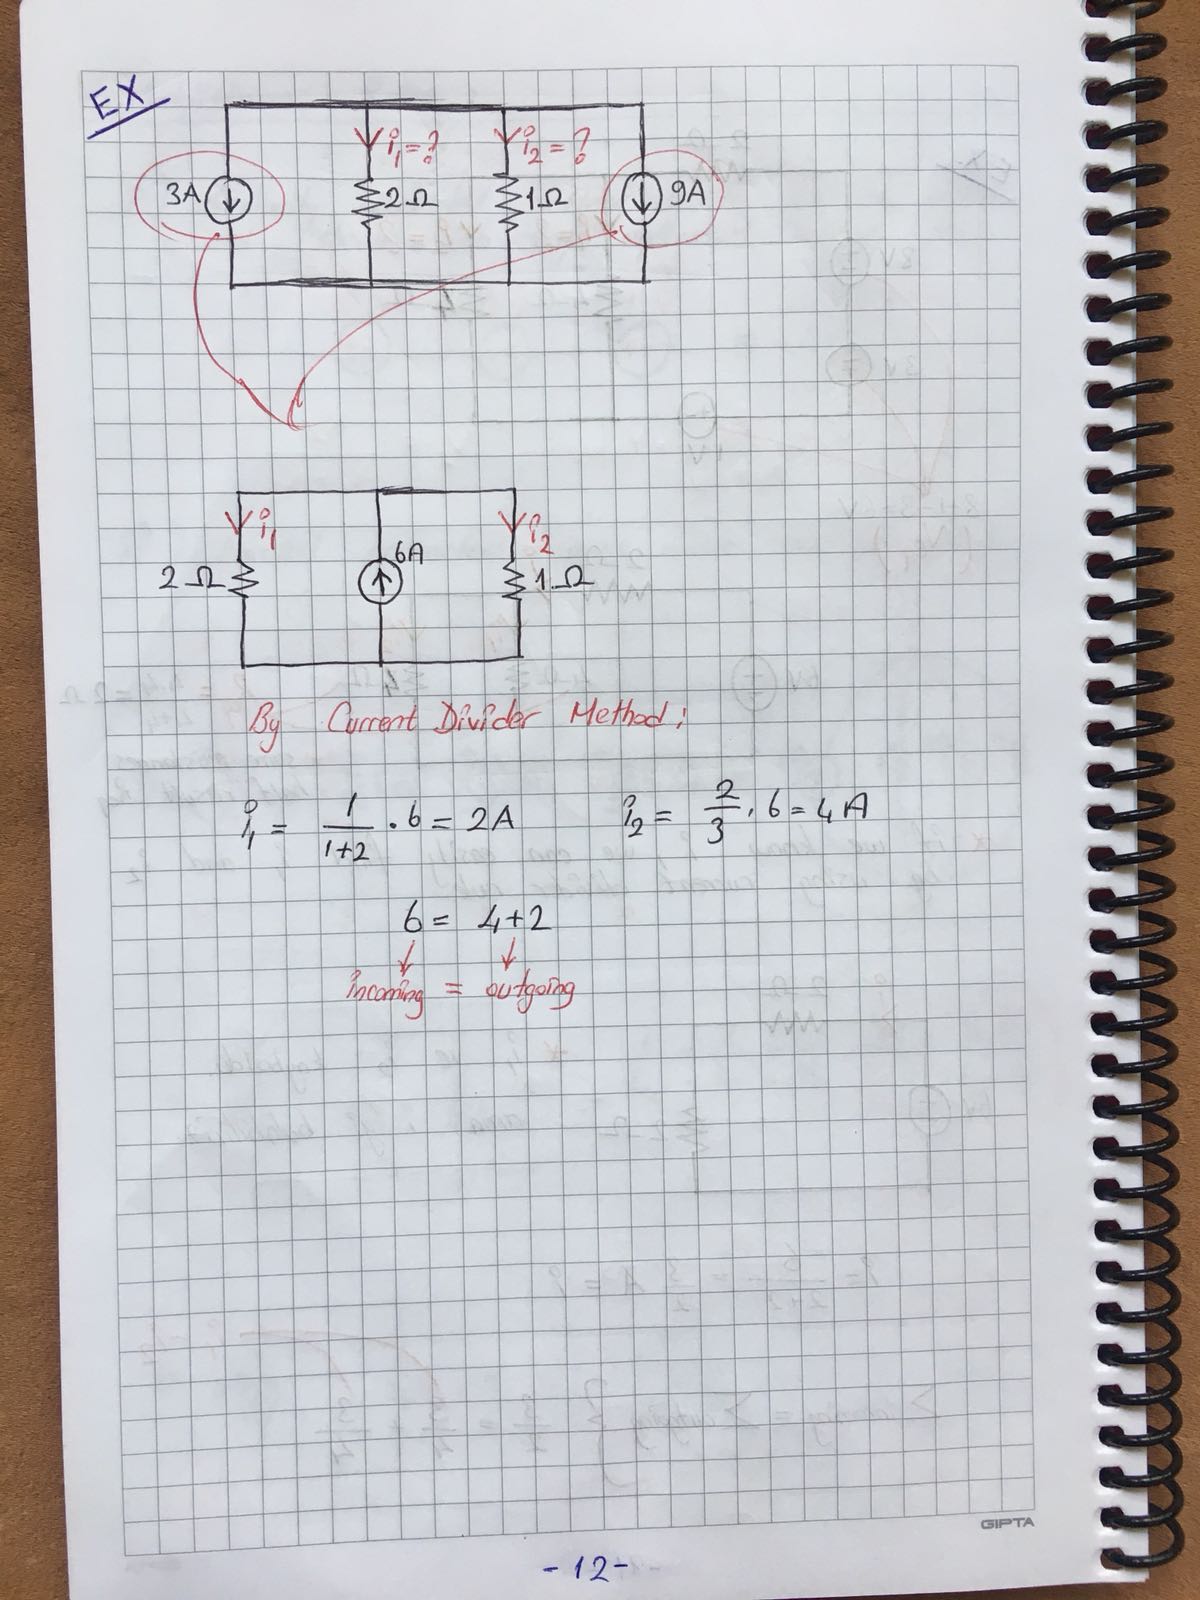 EX
i1=?
i2=?
3A
2Ω
1Ω
9A
i1
i2
6A
2Ω
1Ω
By Current Divider Method:
i1 = 1/(1+2) . 6 = 2A
i2 = 2/3 . 6 = 4A
6 = 4+2
incoming = outgoing
GIPTA
-12-